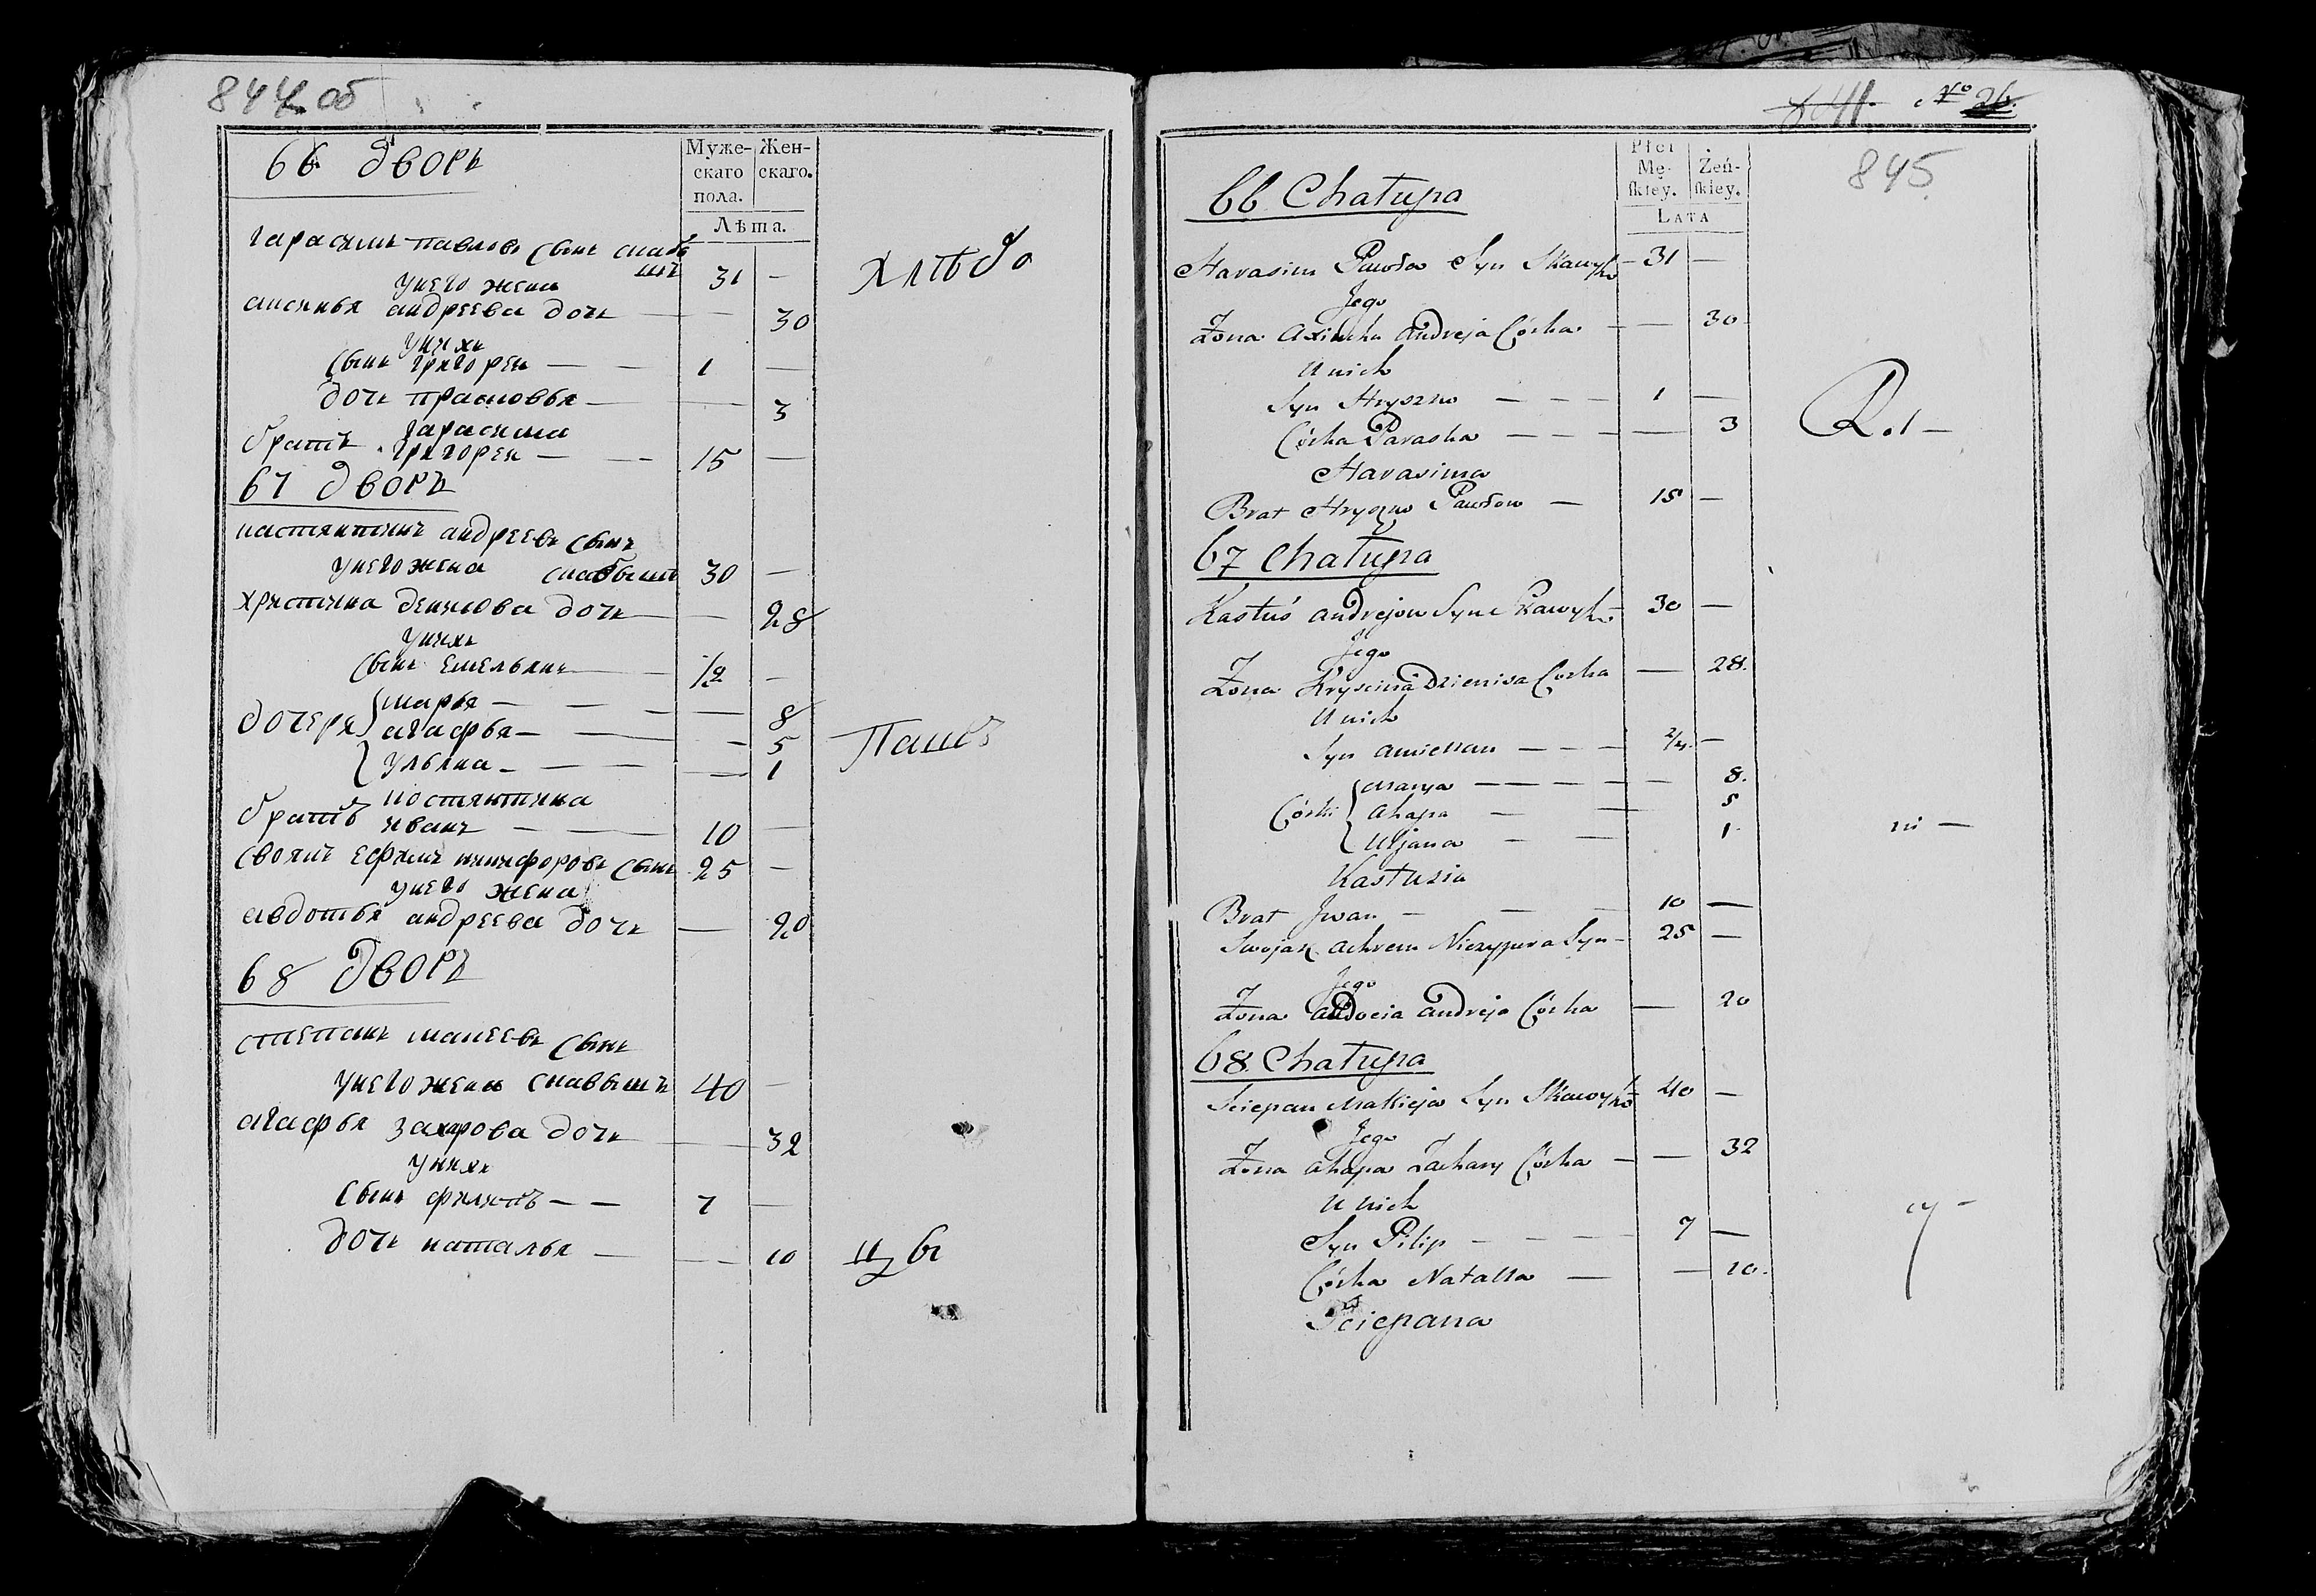 844 об
66 дворъ
Муже-
скаго
пола.
Жен-
скаго.
Лѣта.
гарасимъ павловъ сынъ скавы
шъ 31 —
у него жена
аксинья андреева дочь — — 30
у нихъ
сынъ григореи — — 1 —
дочь прасковья — — 3
гарасима
братъ григореи — — 15 —
хлѣбо
67 дворъ
кастянтинъ андреевъ сынъ
у него жена скавышъ 30 —
христина денисова дочь — — 28
у нихъ
сынъ емельянъ — 1/2 —
дочеря
марья — — — — 8
агафья — — — — 5
ульяна — — — — 1
Пашев
костянтина
братъ иванъ — — 10 —
своякъ ефимъ никифоровъ сынъ 25 —
у него жена
авдотья андреева дочь — 20
68 дворъ
степанъ макеевъ сынъ
у него жена скавышъ 40 —
агафья захарова дочь — 32
у нихъ
сынъ филипъ — — 7 —
дочь наталья — — 10
цы
№ 26.
845
66 Chałupa
Płci
Mę-
skiey.
Żeń-
skiey.
Lata
Harasim Pawła Syn Skawyko — 31 —
Jego
Żona Axinha Andreja Córka — — 30
U nich
Syn Hryszko — — — 1 —
Córka Paraska — — — — 3
Rol —
Harasima
Brat Hryszko Pawłow — 15 —
67 Chałupa
Kastuś Andrejow Syn Skawyko — 30 —
Jego
Żona Kryscina Dzienisa Córka — 28.
U nich
Syn Amiellan — — — 2/4. —
Córki
Marya — — — — — 8.
Ahapa — — 5
Uljana — — 1.
ni —
Kastusia
Brat Jwan — — — 10 —
Swojak Achrem Niczypura Syn — 25 —
Jego
Żona Audocia Andreja Córka — 20
68 Chałupa
Sciepan Matkieja Syn Skawyko 40 —
Jego
Żona Ahapa Zachary Córka — — 32
U nich
Syn Pilip — — — — 7 —
Córka Natalla — — 10.
cy —
Sciepana